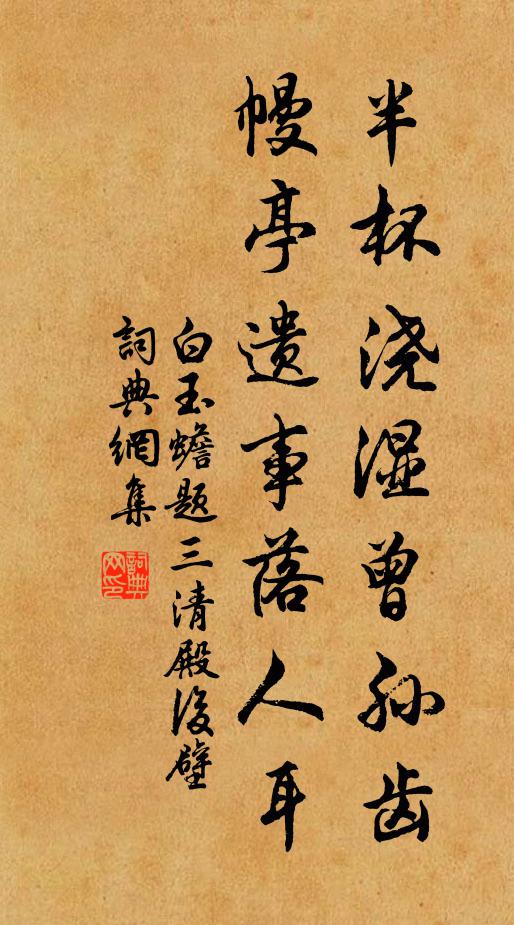 半杯浇湿曾孙齿
幔亭遗事落人耳
白玉蟾题三清殿後壁
詞典網集
詞典网印